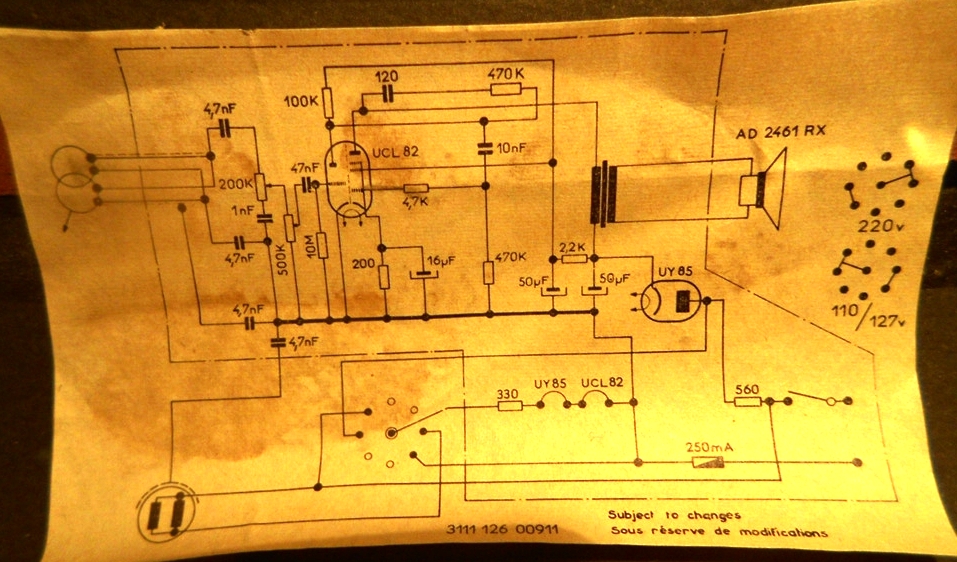 120
470K
100K
4,7nF
AD 2461 RX
UCL 82
10nF
47nF
200K
4,7K
1nF
220v
500K
10M
4,7nF
200
16µF
470K
2,2K
50µF
50µF
UY 85
4,7nF
110/127v
4,7nF
330
UY85
UCL82
560
250mA
3111 126 00911
Subject to changes
Sous réserve de modifications